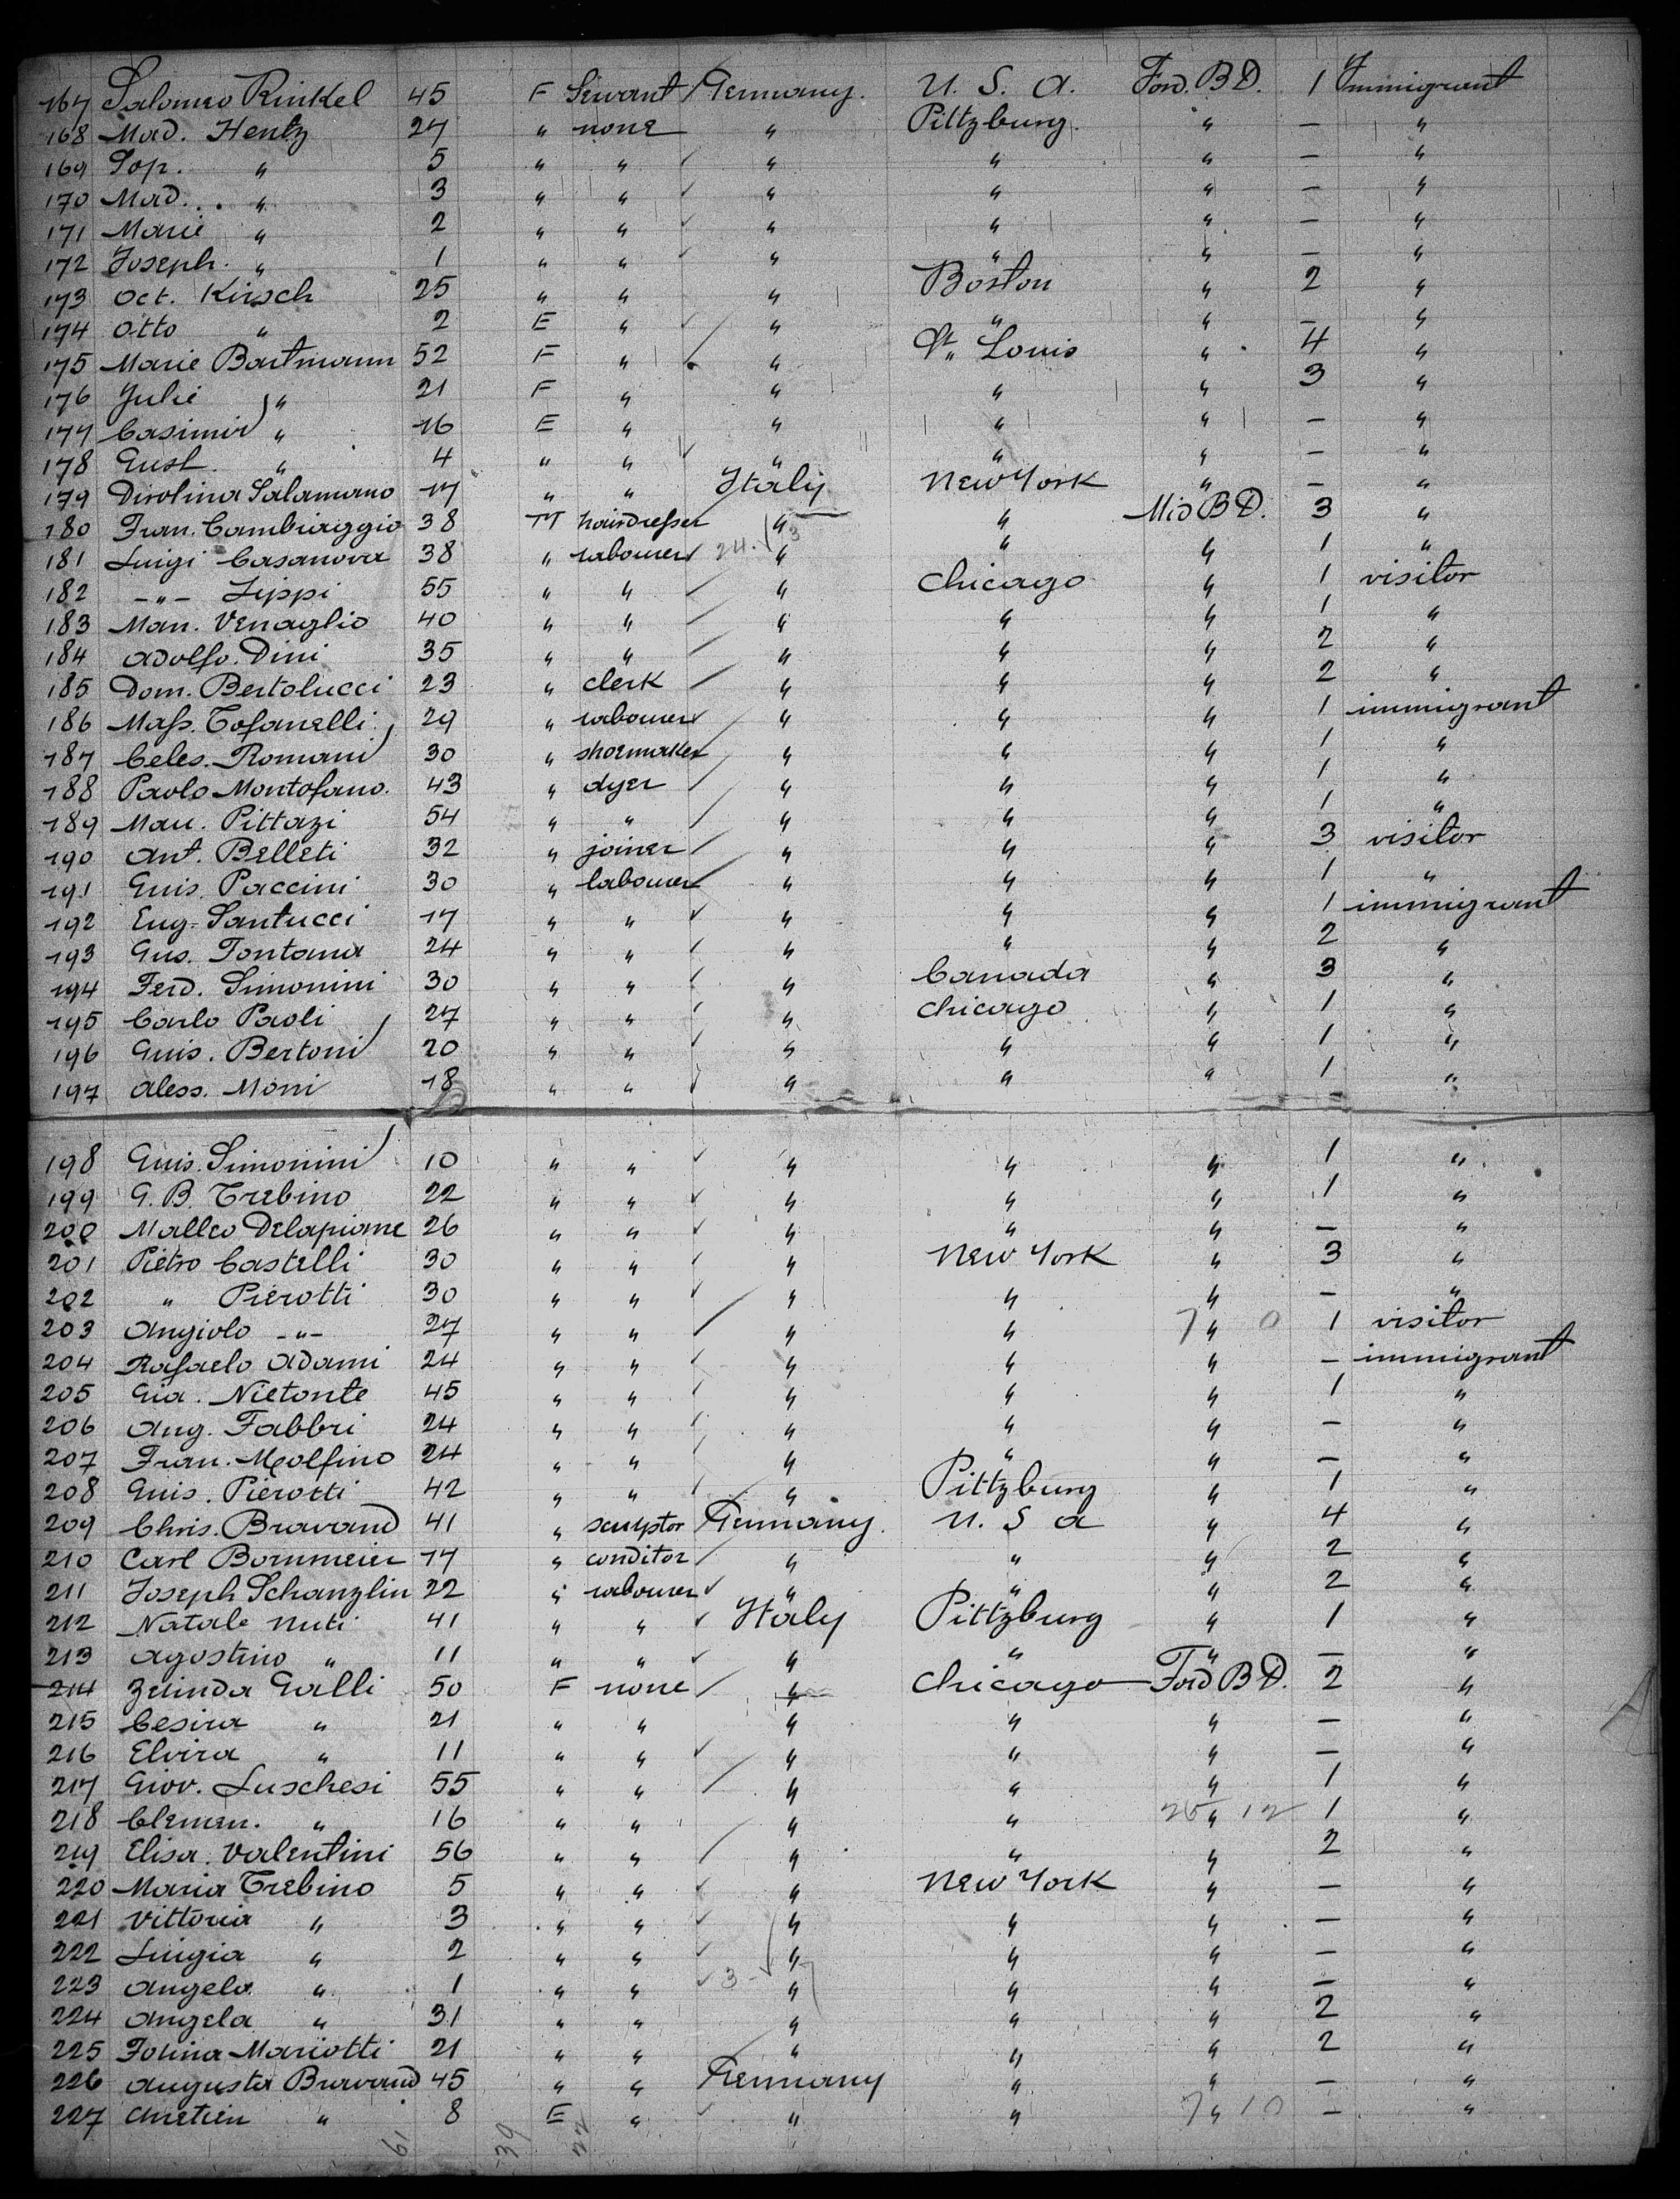 167 Salomeo Rinkel 45 F Servant Germany. U. S. A. Ford. B D. 1 Immigrant
168 Mad. Hentz 27 " none " Pittzburg. " — "
169 Sop. " 5 " " " " " — "
170 Mad. " 3 " " " " " — "
171 Marie " 2 " " " " " — "
172 Joseph. " 1 " " " " " — "
173 Oct. Kirsch 25 " " " Boston " 2 "
174 Otto " 2 E " " " " — "
175 Marie Bartmann 52 F " " St. Louis " 4 "
176 Julie " 21 F " " " " 3 "
177 Casimir " 16 E " " " " — "
178 Gust. " 4 " " " " " — "
179 Dirolina Salamano 17 " " Italy New York " — "
180 Fran. Cambiaggio 38 M hairdresser " " Mid B D. 3 "
181 Luigi Casanova 38 " labourer 24. 3 " " " 1 "
182 —"— Lippi 55 " " " Chicago " 1 visitor
183 Man. Venaglio 40 " " " " " 1 "
184 Adolfo. Dini 35 " " " " " 2 "
185 Dom. Bertolucci 23 " clerk " " " 2 "
186 Mass. Tofanelli 29 " labourer " " " 1 immigrant
187 Celes. Romani 30 " shoemaker " " " 1 "
188 Paolo Montofano. 43 " dyer " " " 1 "
189 Mau. Pittazi 54 " " " " " 1 "
190 Ant. Belleti 32 " joiner " " " 3 visitor
191 Guis. Paccini 30 " labourer " " " 1 "
192 Eug. Santucci 17 " " " " " 1 immigrant
193 Gus. Fontana 24 " " " " " 2 "
194 Ferd. Simonini 30 " " " Canada " 3 "
195 Carlo Paoli 27 " " " Chicago " 1 "
196 Guis. Bertoni 20 " " " " " 1 "
197 Aless. Moni 18 " " " " " 1 "
198 Guis. Simonini 10 " " " " " 1 "
199 G. B. Trebino 22 " " " " " 1 "
200 Matteo Delapiane 26 " " " " " — "
201 Pietro Castelli 30 " " " New York " 3 "
202 " Pierotti 30 " " " " " — "
203 Angiolo —"— 27 " " " " 7 " 0 1 visitor
204 Rafaelo Adami 24 " " " " " — immigrant
205 Gia. Nietonte 45 " " " " " 1 "
206 Aug. Fabbri 24 " " " " " — "
207 Fran. Molfino 24 " " " " " — "
208 Guis. Pierotti 42 " " " Pittzburg " 1 "
209 Chris. Bravand 41 " sculptor Germany. U. S a " 4 "
210 Carl Bornmeier 17 " conditor " " " 2 "
211 Joseph Schanzlin 22 " labourer " " " 2 "
212 Natale Nuti 41 " " Italy Pittzburg " 1 "
213 Agostino " 11 " " " " " — "
214 Zeinda Galli 50 F none " Chicago Ford B D. 2 "
215 Cesira " 21 " " " " " — "
216 Elvira " 11 " " " " " — "
217 Giov. Luschesi 55 " " " " " 1 "
218 Clemen. " 16 " " " " 26 " 12 1 "
219 Elisa. Valentini 56 " " " " " 2 "
220 Maria Trebino 5 " " " New York " — "
221 Vittoria " 3 " " " " " — "
222 Luigia " 2 " " " " " — "
223 Angelo. " 1 " " 3 " " " — "
224 Angela " 31 " " " " " 2 "
225 Folina Mariotti 21 " " " " " 2 "
226 Augusta Bravand 45 " " Germany " " — "
227 Chretien " 8 E " " " 7 " 10 — "
61 39 22